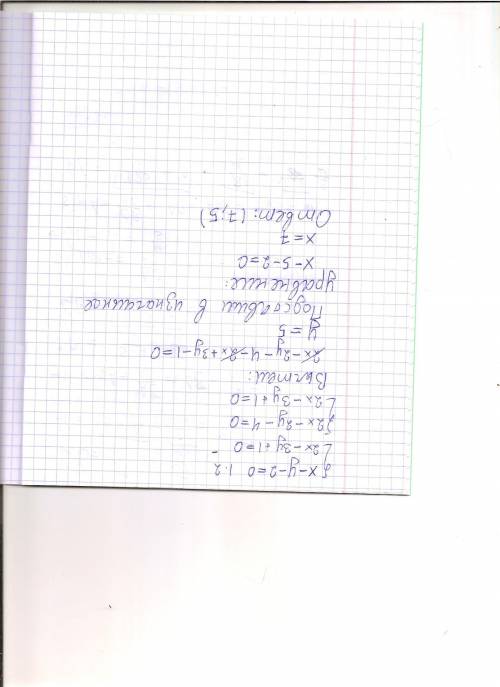 {x-y-2=0 |·2
{2x-3y+1=0
{2x-2y-4=0
{2x-3y+1=0
Вычтем:
2x-2y-4-2x+3y-1=0
y=5
Подставим в изначальное
уравнение:
x-5-2=0
x=7
Ответ: (7;5)